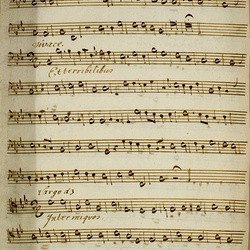 vivace.
Et terribilibus
Virgo ds
Inter iniquos.